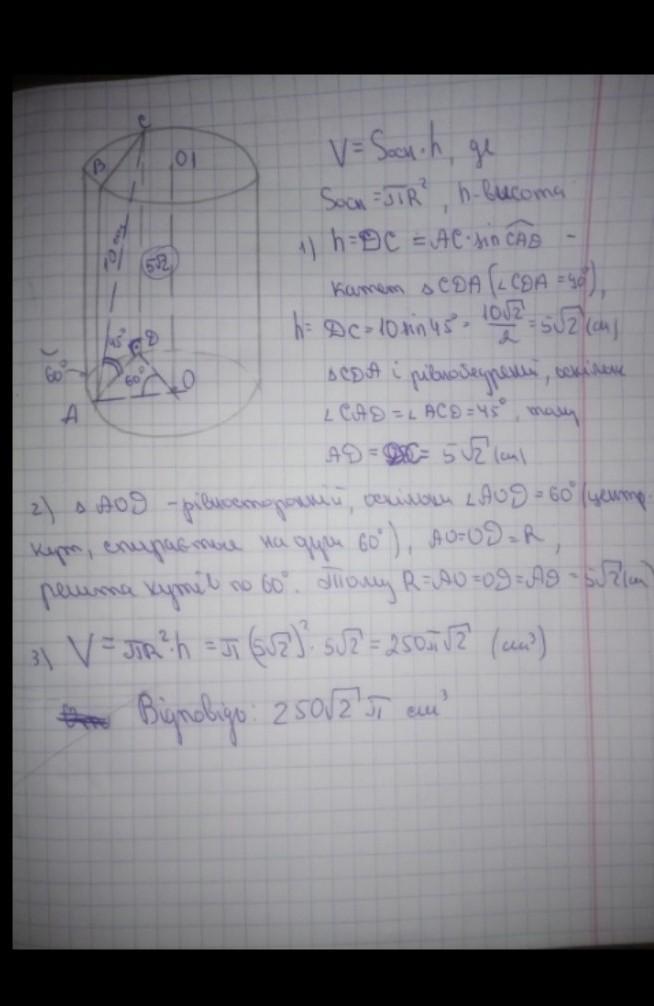 C
B
O1
10 см
5√2
45°
D
60°
60°
O
A
V = Sосн·h, де
Sосн = πR², h-висота
1) h = DC = AC·sin CAD -
катет △CDA (∠CDA = 90°),
h = DC = 10 sin 45° = 10√2/2 = 5√2 (см)
△CDA і рівнобедрений, оскільки
∠CAD = ∠ACD = 45°, тому
AD = DC = 5√2 (см)
2) △AOD - рівносторонній, оскільки ∠AOD = 60° (центр.
кут, спирається на дугу 60°), AO = OD = R,
решта кутів по 60°. Тому R = AO = OD = AD = 5√2 (см)
3) V = πR²·h = π(5√2)²·5√2 = 250π√2 (см³)
Відповідь: 250√2 π см³